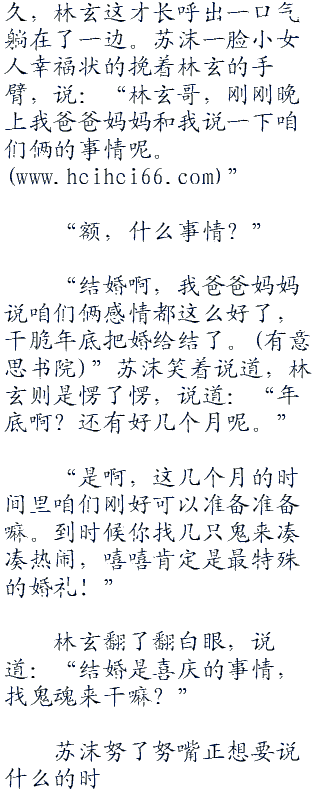 久，林玄这才长呼出一口气
躺在了一边。苏沫一脸小女
人幸福状的挽着林玄的手
臂，说：“林玄哥，刚刚晚
上我爸爸妈妈和我说一下咱
们俩的事情呢。
(www.hcihci66.com)”
“额，什么事情？”
“结婚啊，我爸爸妈妈
说咱们俩感情都这么好了，
干脆年底把婚给结了。(有意
思书院)”苏沫笑着说道，林
玄则是愣了愣，说道：“年
底啊？还有好几个月呢。”
“是啊，这几个月的时
间里咱们刚好可以准备准备
嘛。到时候你找几只鬼来凑
凑热闹，嘻嘻肯定是最特殊
的婚礼！”
林玄翻了翻白眼，说
道：“结婚是喜庆的事情，
找鬼魂来干嘛？”
苏沫努了努嘴正想要说
什么的时